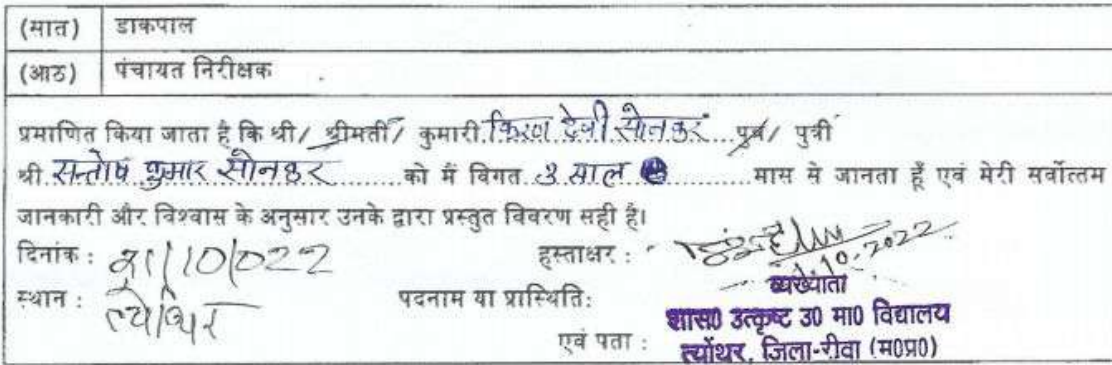 (सात) डाकपाल
(आठ) पंचायत निरीक्षक
प्रमाणित किया जाता है कि श्री/ श्रीमती/ कुमारी किरण देवी सोनकर पुत्र/ पुत्री
श्री सन्तोष कुमार सोनकर को मैं विगत 3 साल मास से जानता हूँ एवं मेरी सर्वोत्तम
जानकारी और विश्वास के अनुसार उनके द्वारा प्रस्तुत विवरण सही है।
दिनांक : 21/10/2022 हस्ताक्षर :
.10.2022
स्थान : त्योंथर पदनाम या प्रास्थिति: व्याख्याता
शास0 उत्कृष्ट उ0 मा0 विद्यालय
एवं पता : त्योंथर, जिला-रीवा (म0प्र0)